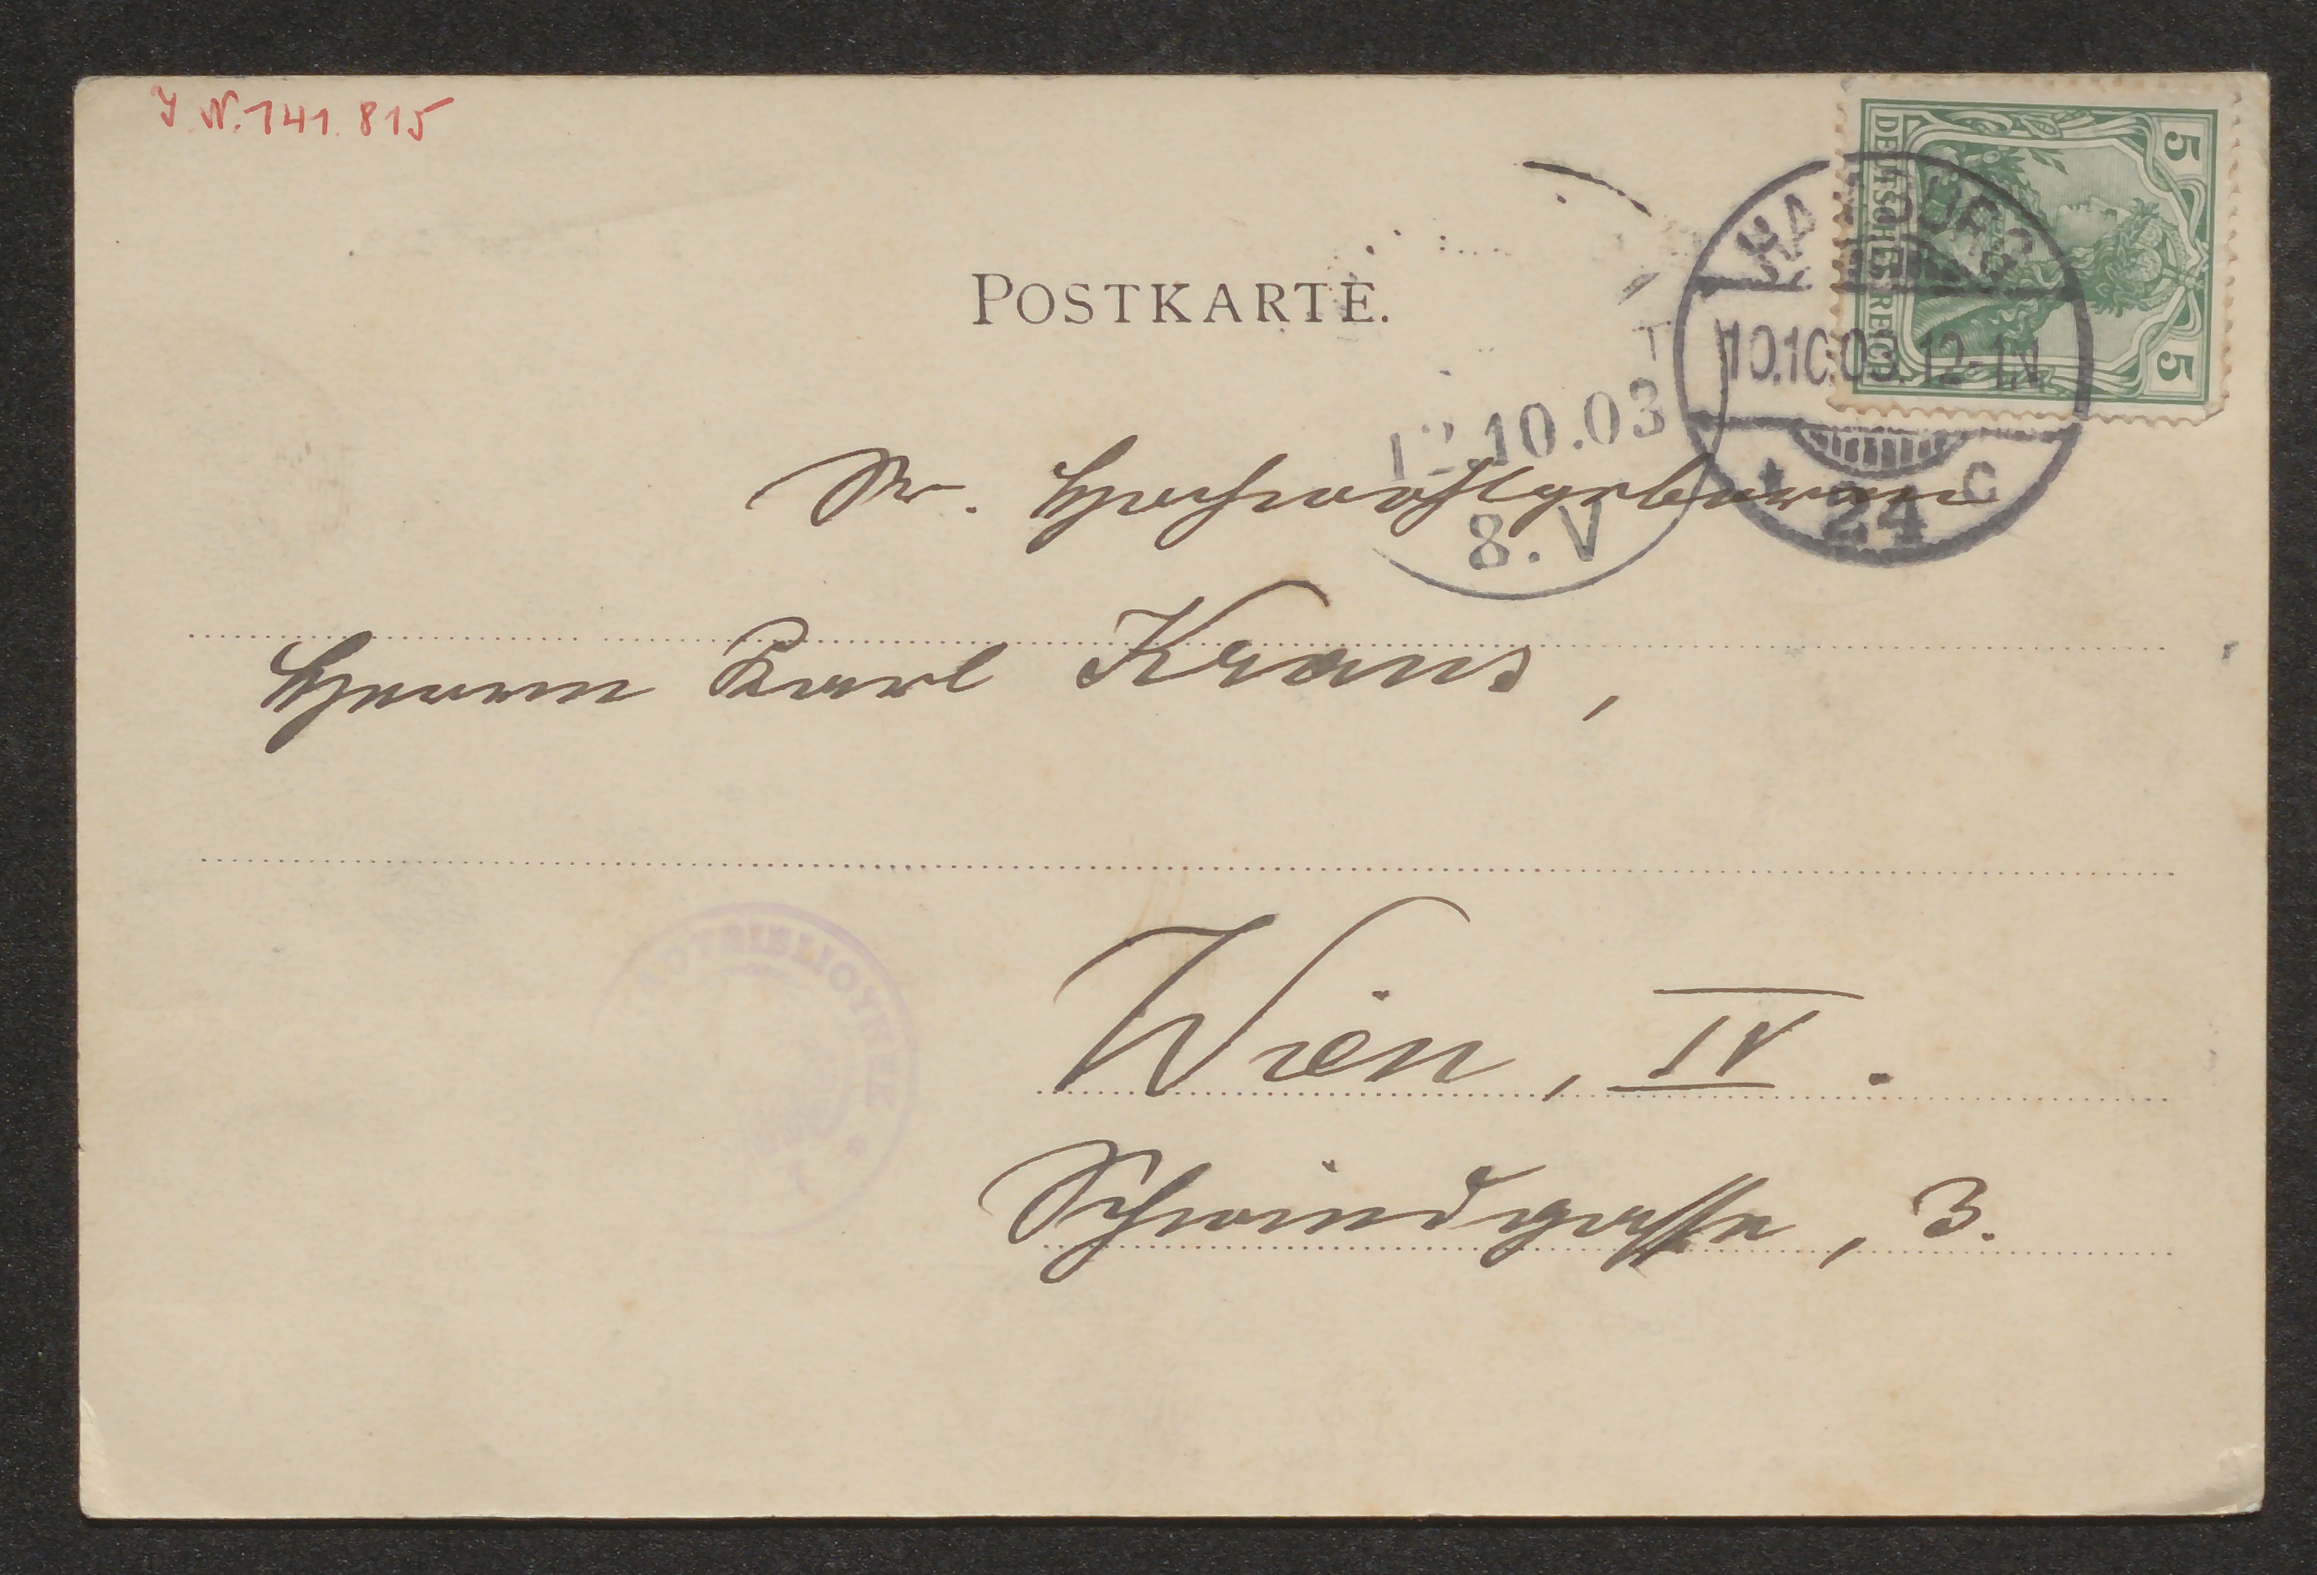 J. N. 141.815
DEUTSCHES REICH
5 5
HAMBURG
10.10.03. 12-1N
* 24 c
POSTKARTE.
12.10.03
8.V
Sr. Hochwohlgeboren
Herrn Karl Kraus,
Wien, IV.
Schwindgasse, 3.